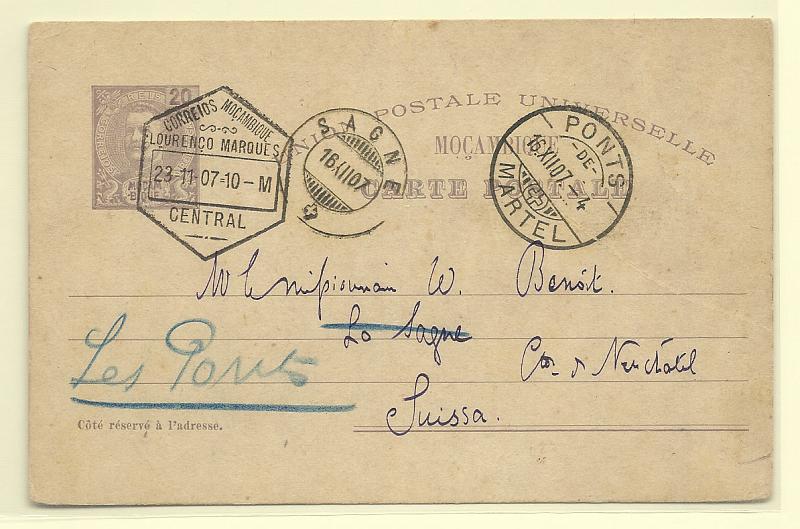 UNION POSTALE UNIVERSELLE
MOÇAMBIQUE
CARTE POSTALE
REIS 20
CORREIOS MOÇAMBIQUE
LOURENÇO MARQUES
23-11-07=10-M
CENTRAL
SAGNE
16.XII07
PONTS
-DE-
MARTEL
16.XII07.-4
Mr le missionnair W. Benoît.
La Sagne
Ctn. d Neuchâtel
Les Ponts
Suissa.
Côté réservé à l'adresse.